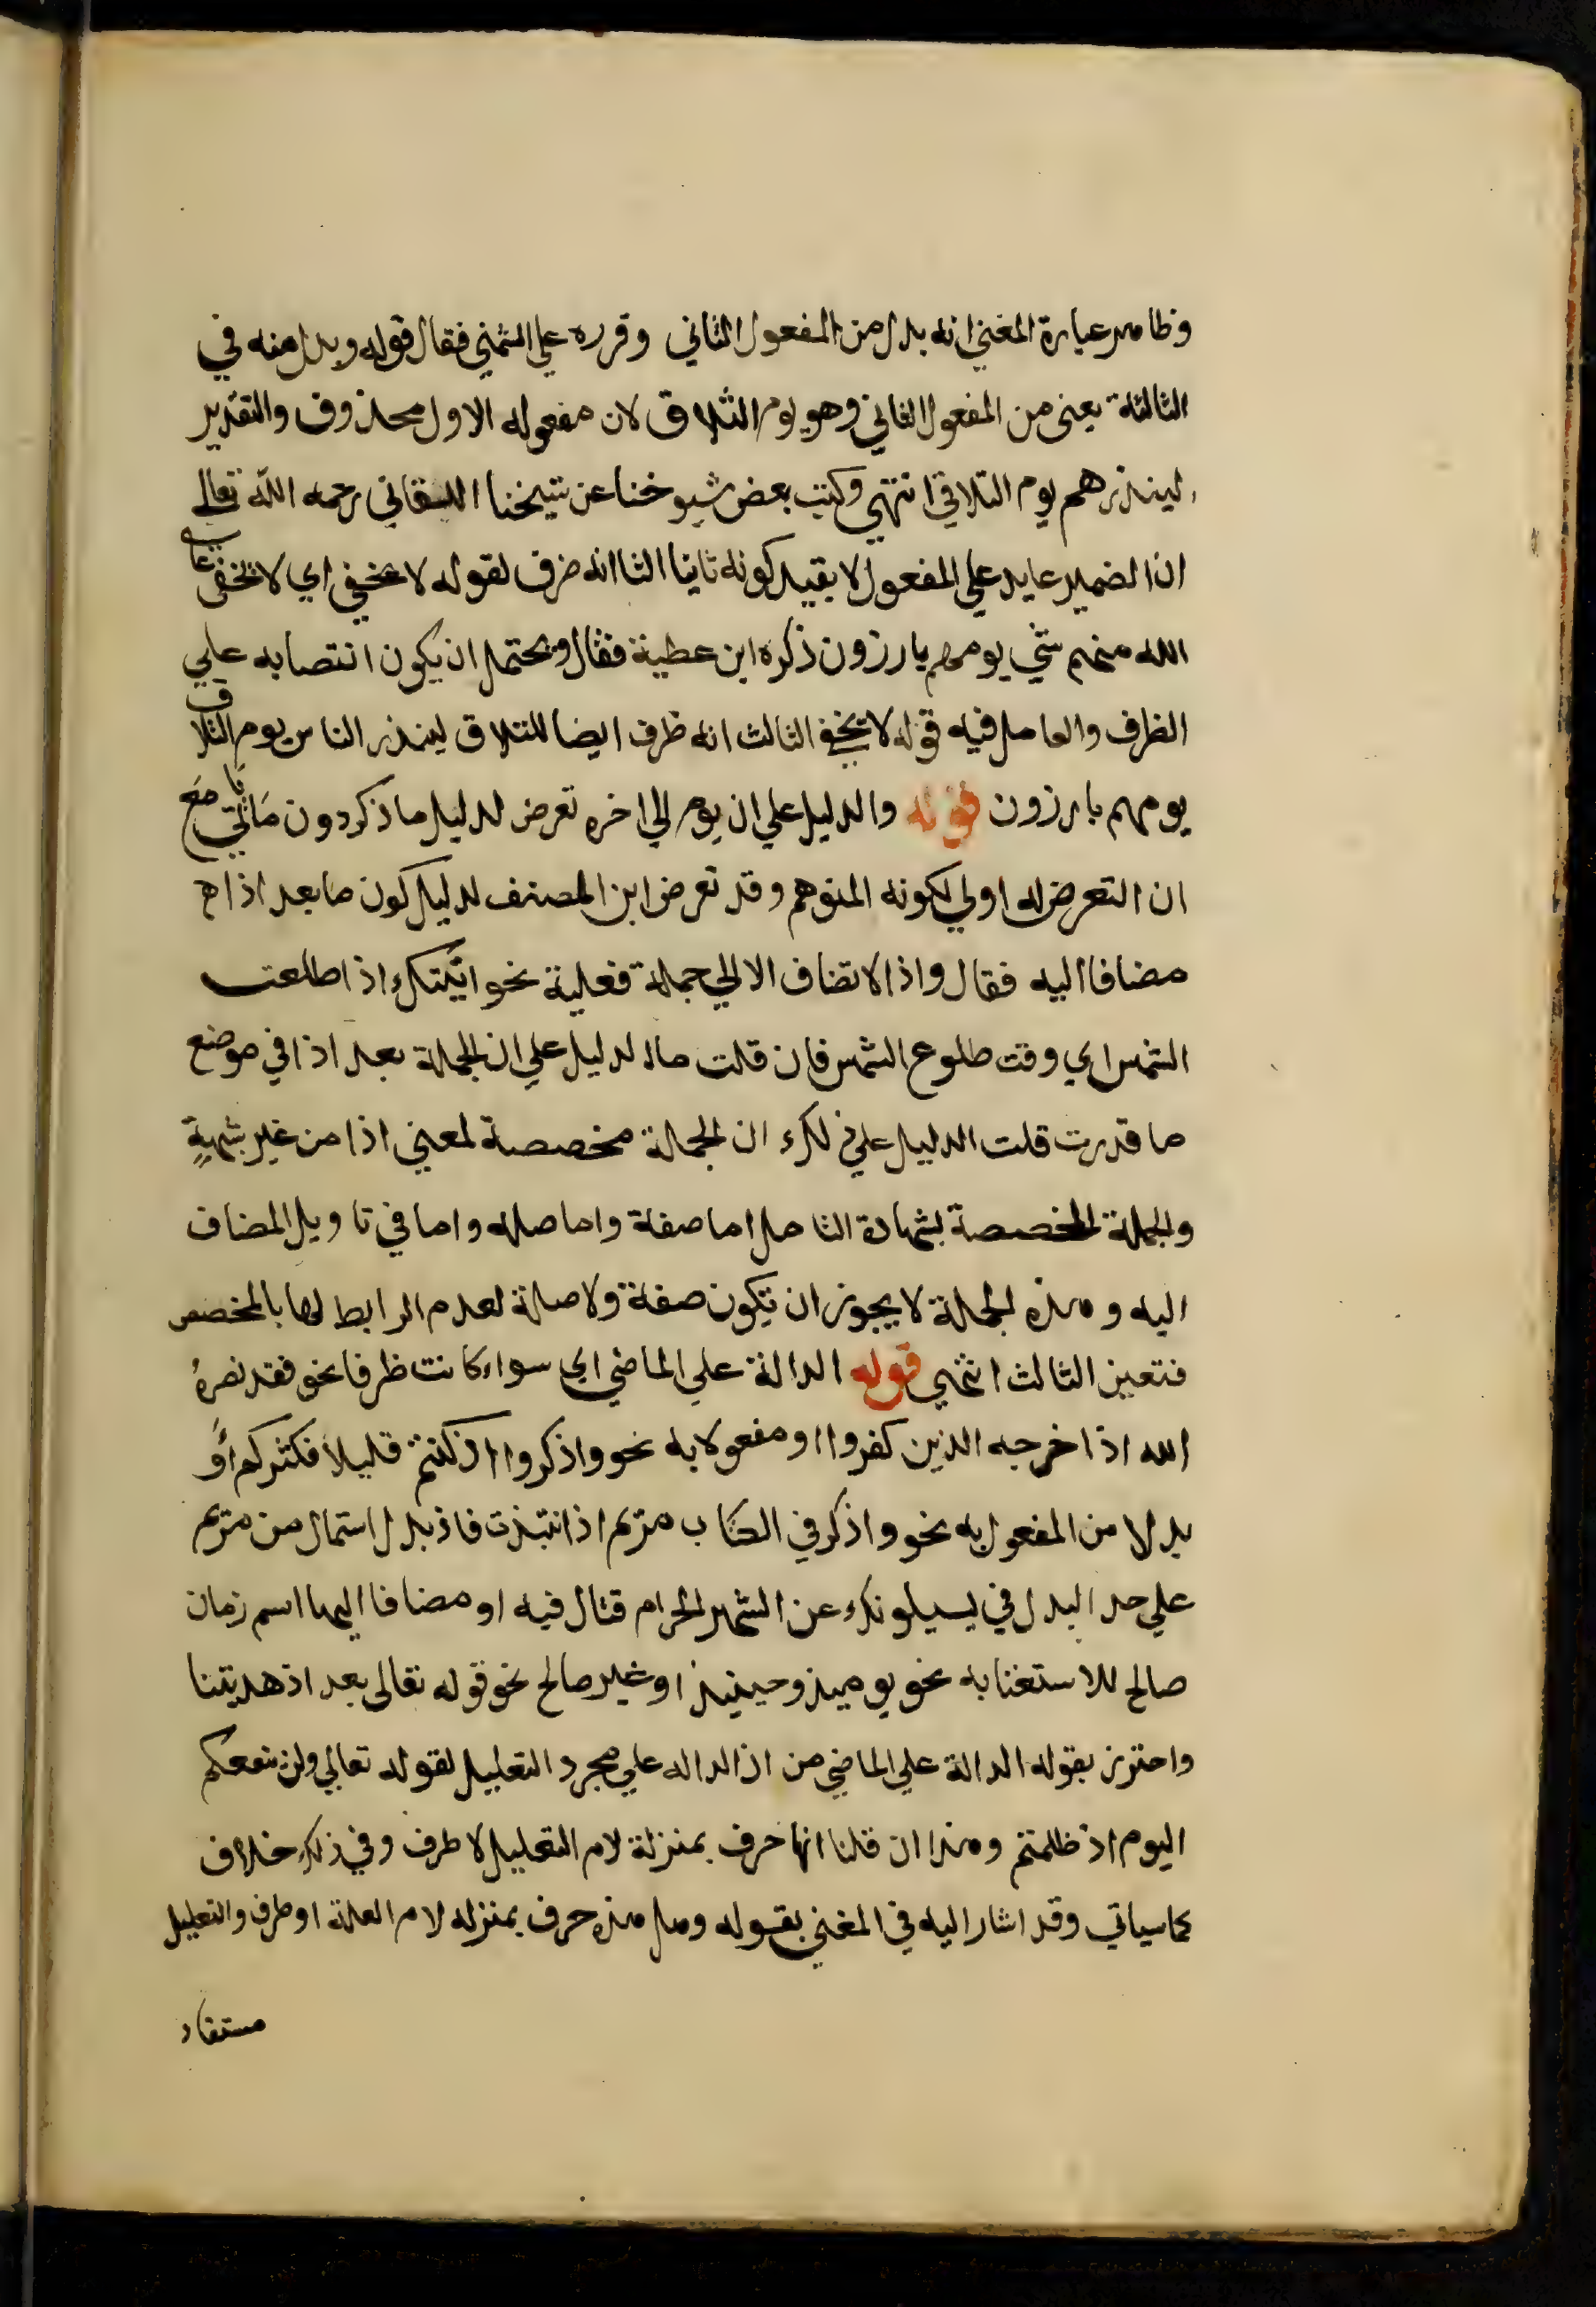 وظاهر عبارة المغني انه بدل من المفعول الثاني وقرره علي الشمني فقال قوله وبدل منه في
الثالثة يعنى من المفعول الثاني وهو يوم التلاق لان مفعوله الاول محذوف والتقدير
لينذرهم يوم التلاقي انتهي وكتب بعض شيوخنا عن شيخنا اللقاني رحمه الله تعالى
ان الضمير عايد علي المفعول لا بقيد كونه ثانيا الثا انه ضرف لقوله لا يخفي اي لا يخفى علي
الله منهم شي يوم هم بارزون ذكره ابن عطية فقال ويحتمل ان يكون انتصابه علي
الظرف والعامل فيه قوله لا يخفي الثالث انه ظرف ايضا للتلاق لينذر الناس يوم التلاق
يوم هم بارزون قوله والدليل علي ان يوم الي اخره تعرض لدليل ما ذكر دون ما ياتي مع
ان التعرض له اولي لكونه المتوهم وقد تعرض ابن المصنف لدليل كون ما بعد اذا ه
مضافا اليه فقال واذا لا تضاف الا الي جملة فعلية نحو اتيتك اذا طلعت
الشمس اي وقت طلوع الشمس فان قلت ما الدليل علي ان الجملة بعد اذا في موضع
ما قدرت قلت الدليل علي ذلك ان الجملة مخصصة لمعني اذا من غير شبهةٍ
والجملة المخصصة بشهادة التامل اما صفة واما صله واما في تاويل المضاف
اليه وهذه الجملة لا يجوز ان تكون صفة ولا صلة لعدم الرابط لها بالمخصص
فتعين الثالث انتهي قوله الدالة علي الماضي اي سواء كانت ظرفا نحو فقد نصرهُ
الله اذ اخرجه الذين كفروا او مفعولا به نحو واذكروا اذ كنتم قليلا فكثركم أو
بدلا من المفعول به نحو واذكر في الكتاب مريم اذ انتبذت فاذ بدل اشتمال من مريم
علي حد البدل في يسيلونك عن الشهر الحرام قتال فيه او مضافا اليها اسم زمان
صالح للاستغنا به نحو يوميذ وحينيذ او غير صالح نحو قوله تعالى بعد اذ هديتنا
واحترز بقوله الدالة علي الماضي من اذ الداله علي مجرد التعليل لقوله تعالي ولن ينفعكم
اليوم اذ ظلمتم وهذا ان قلنا انها حرف بمنزلة لام التعليل لا ظرف وفي ذلك خلاف
كما سياتي وقد اشار اليه في المغني بقوله وهل هذه حرف بمنزله لام العلة او ظرف والتعليل
مستفاد